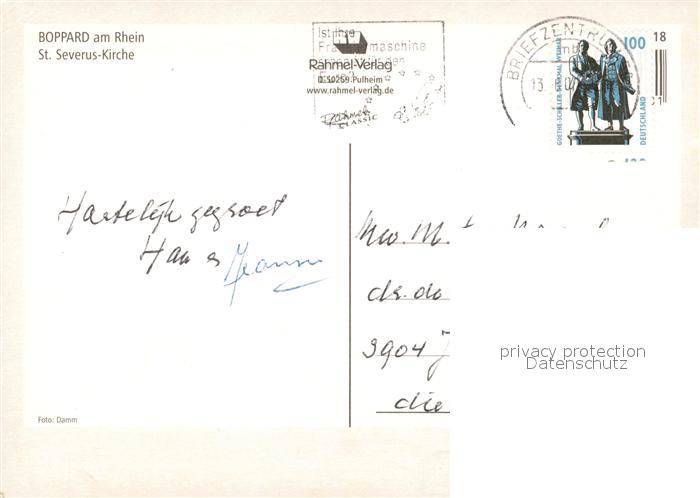 BOPPARD am Rhein
St. Severus-Kirche
Ist Ihre
Rahmel-Verlag
D-50259 Pulheim
www.rahmel-verlag.de
Rahmel
CLASSIC
BRIEFZENTRUM
13.
100
18
GOETHE-SCHILLER-DENKMAL WEIMAR
DEUTSCHLAND
Hartelijk gegroet
Han en Jeanne
Mw. M.
dr. de
3904
die
privacy protection
Datenschutz
Foto: Damm